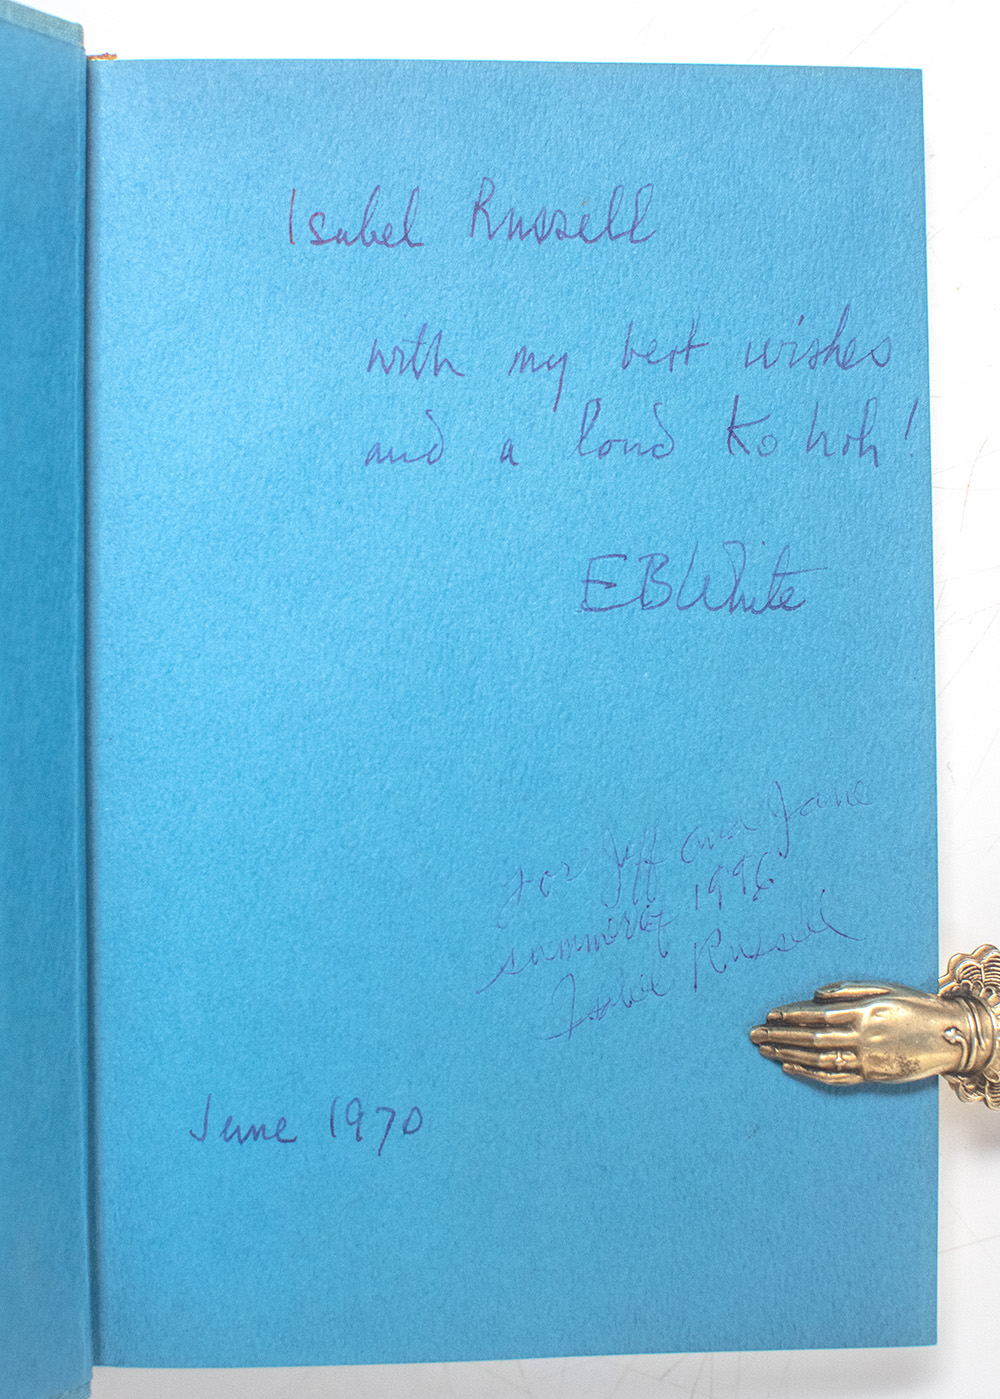 Isabel Russell
with my best wishes
and a loud Ko hoh!
EBWhite
For Jeff and Jane
summer of 1996
Isabel Russell
June 1970